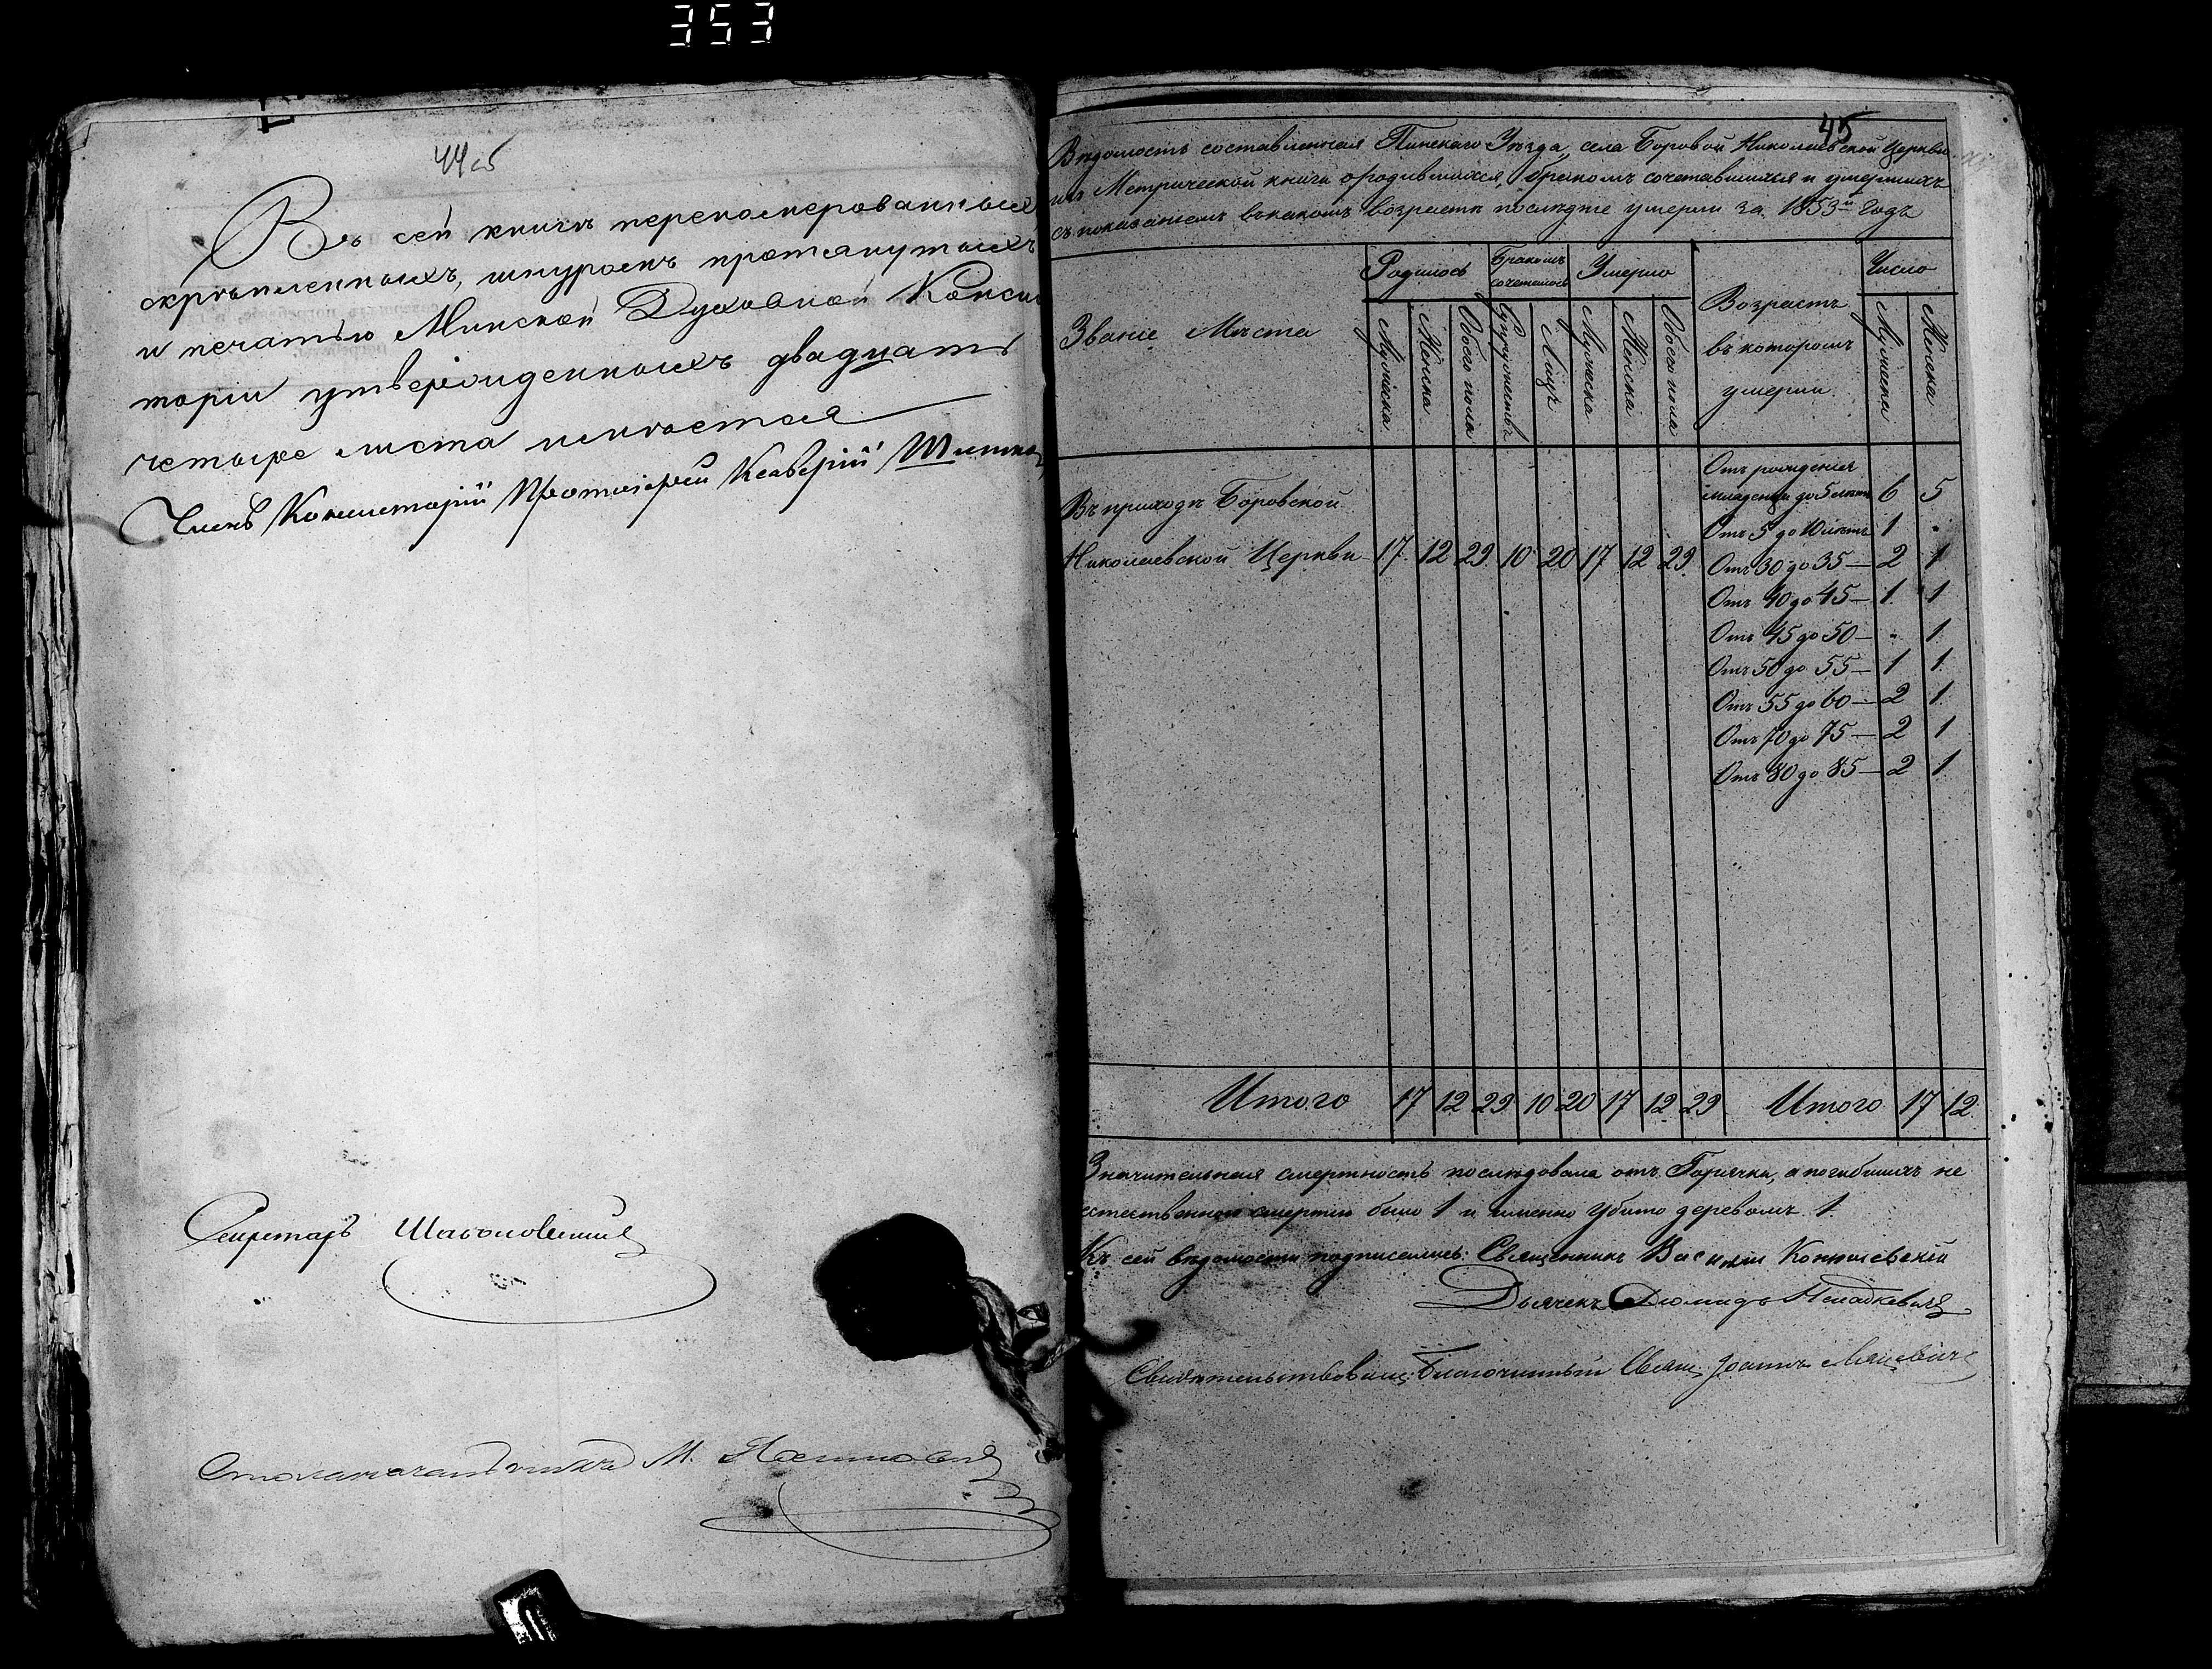 353
44 об
Въ сей книгѣ перенамерованныхъ
скрѣпленныхъ, шнуромъ протянутыхъ
и печатью Минской Духовной Консис
торіи утвержденныхъ двадцать
четыре листа имѣется
Членъ Консисторіи Протоіерей Ксаверій
Секретарь
Столоначальникъ М.
45
Вѣдомость составленная Пинскаго Уѣзда, села Боровой Николаевской Церкви
изъ Метрической книги о родившихся, бракомъ сочетавшихся и умершихъ
съ показаніемъ въ какомъ возрастѣ послѣдніе умерли за 1853й Годъ
Званіе Мѣста
Родилось
Бракомъ сочеталось
Умерло
Возрастъ въ которомъ умерли
Число
Мужеска Женска Обоего пола Супружествъ Лицъ Мужеска Женска Обоего пола Мужеска Женска
Въ приходѣ Боровской
Николаевской Церкви 17 12 29 10 20 17 12 29
Отъ рожденія
младенцы до 5 лѣтъ 6 5
Отъ 5 до 10 лѣтъ 1 "
Отъ 30 до 35 — 2 1
Отъ 40 до 45 — 1 1
Отъ 45 до 50 — " 1
Отъ 50 до 55 — 1 1
Отъ 55 до 60 — 2 1
Отъ 70 до 75 — 2 1
Отъ 80 до 85 — 2 1
Итого 17 12 29 10 20 17 12 29 Итого 17 12
Значительная смертность послѣдовала отъ Горячки, а погибшихъ не
естественной смертію было 1 и именно убито деревомъ 1.
Къ сей вѣдомости подписались: Священникъ Василій
Дьячекъ Дiомидъ
Свидѣтельствовалъ: Благочинный Свящ. Іоаннъ Мацевичъ